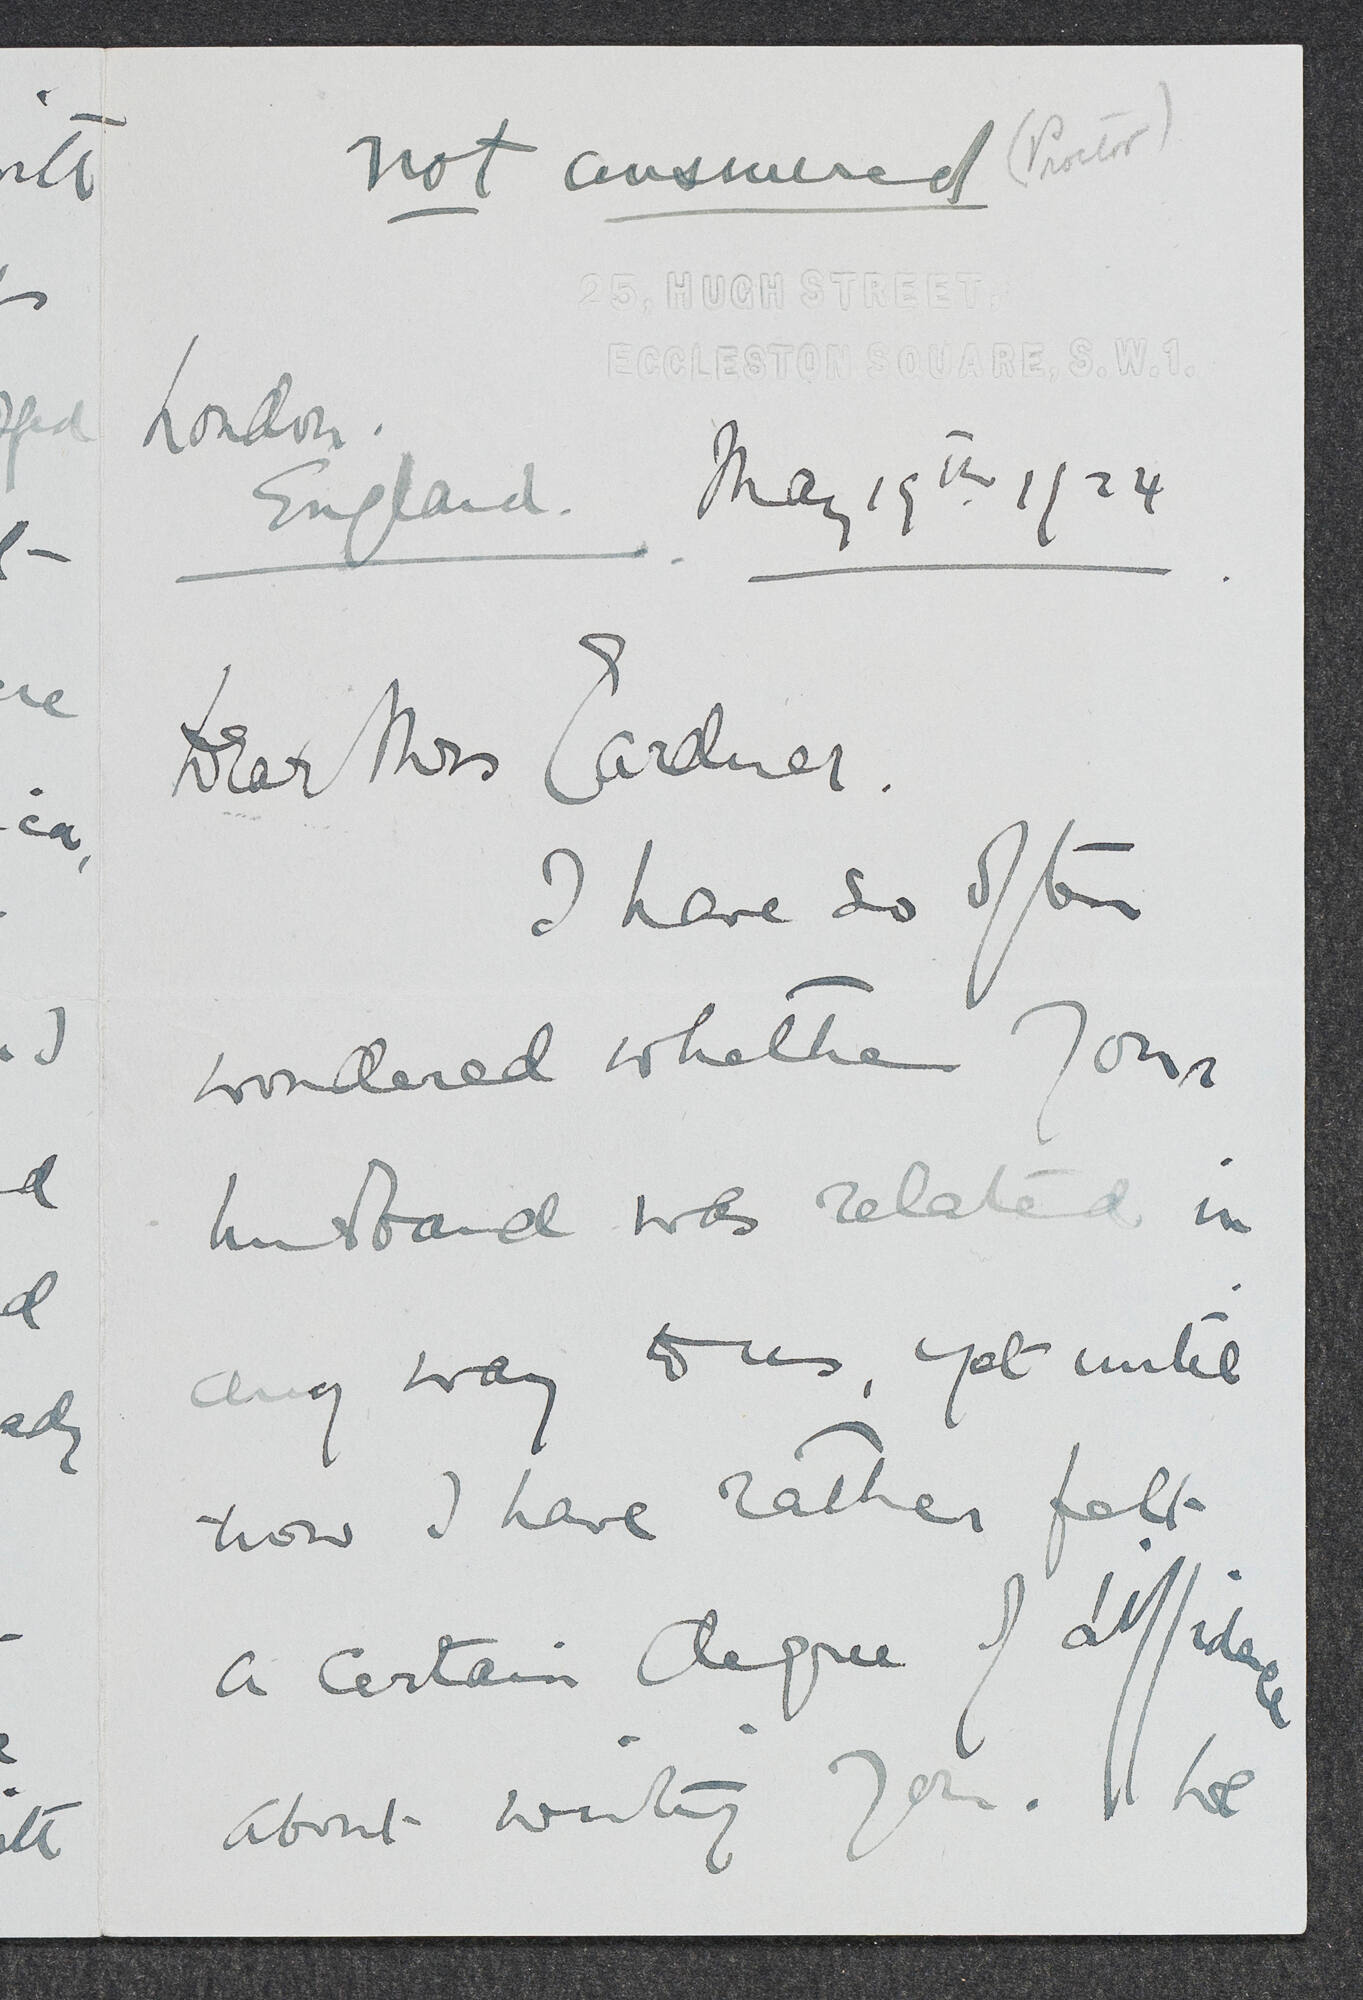 not answered (Proctor)
25, HUGH STREET,
ECCLESTON SQUARE, S.W.1.
London.
England. May 19th 1924
Dear Mrs Gardner.
I have so often
wondered whether your
husband was related in
any way to us, yet until
now I have rather felt
a certain degree of diffidence
about writing you. We